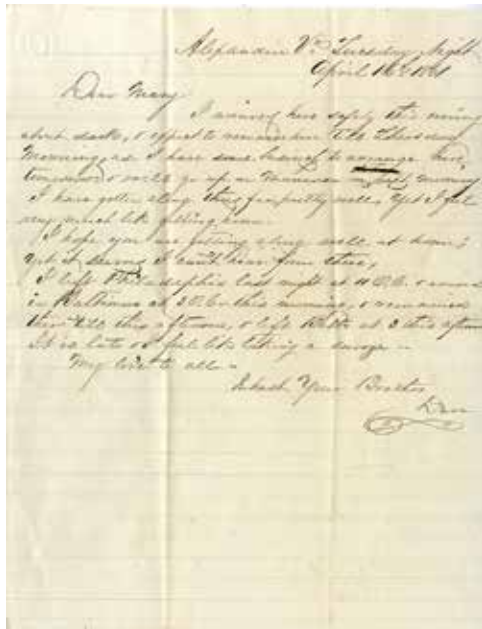 Alexandria Va Tuesday Night
April 16 1861
Dear Mary
I arrived here safely this evening
about dark, & expect to remain here till Thursday
Morning, as I have some business to arrange here,
tomorrow & will go up on
I have gotten along thus far pretty well, Yet I feel
very much like getting home.
I hope you are getting along well at home,
Yet it seems I can't hear from there,
I left Philadelphia last night at 11 O.C. &
in Baltimore at 3 O.C. this morning, & remained
there till this afternoon, & left Balto at 3 this afternoon
It is late & I feel like taking a
My love to all
Your Brother